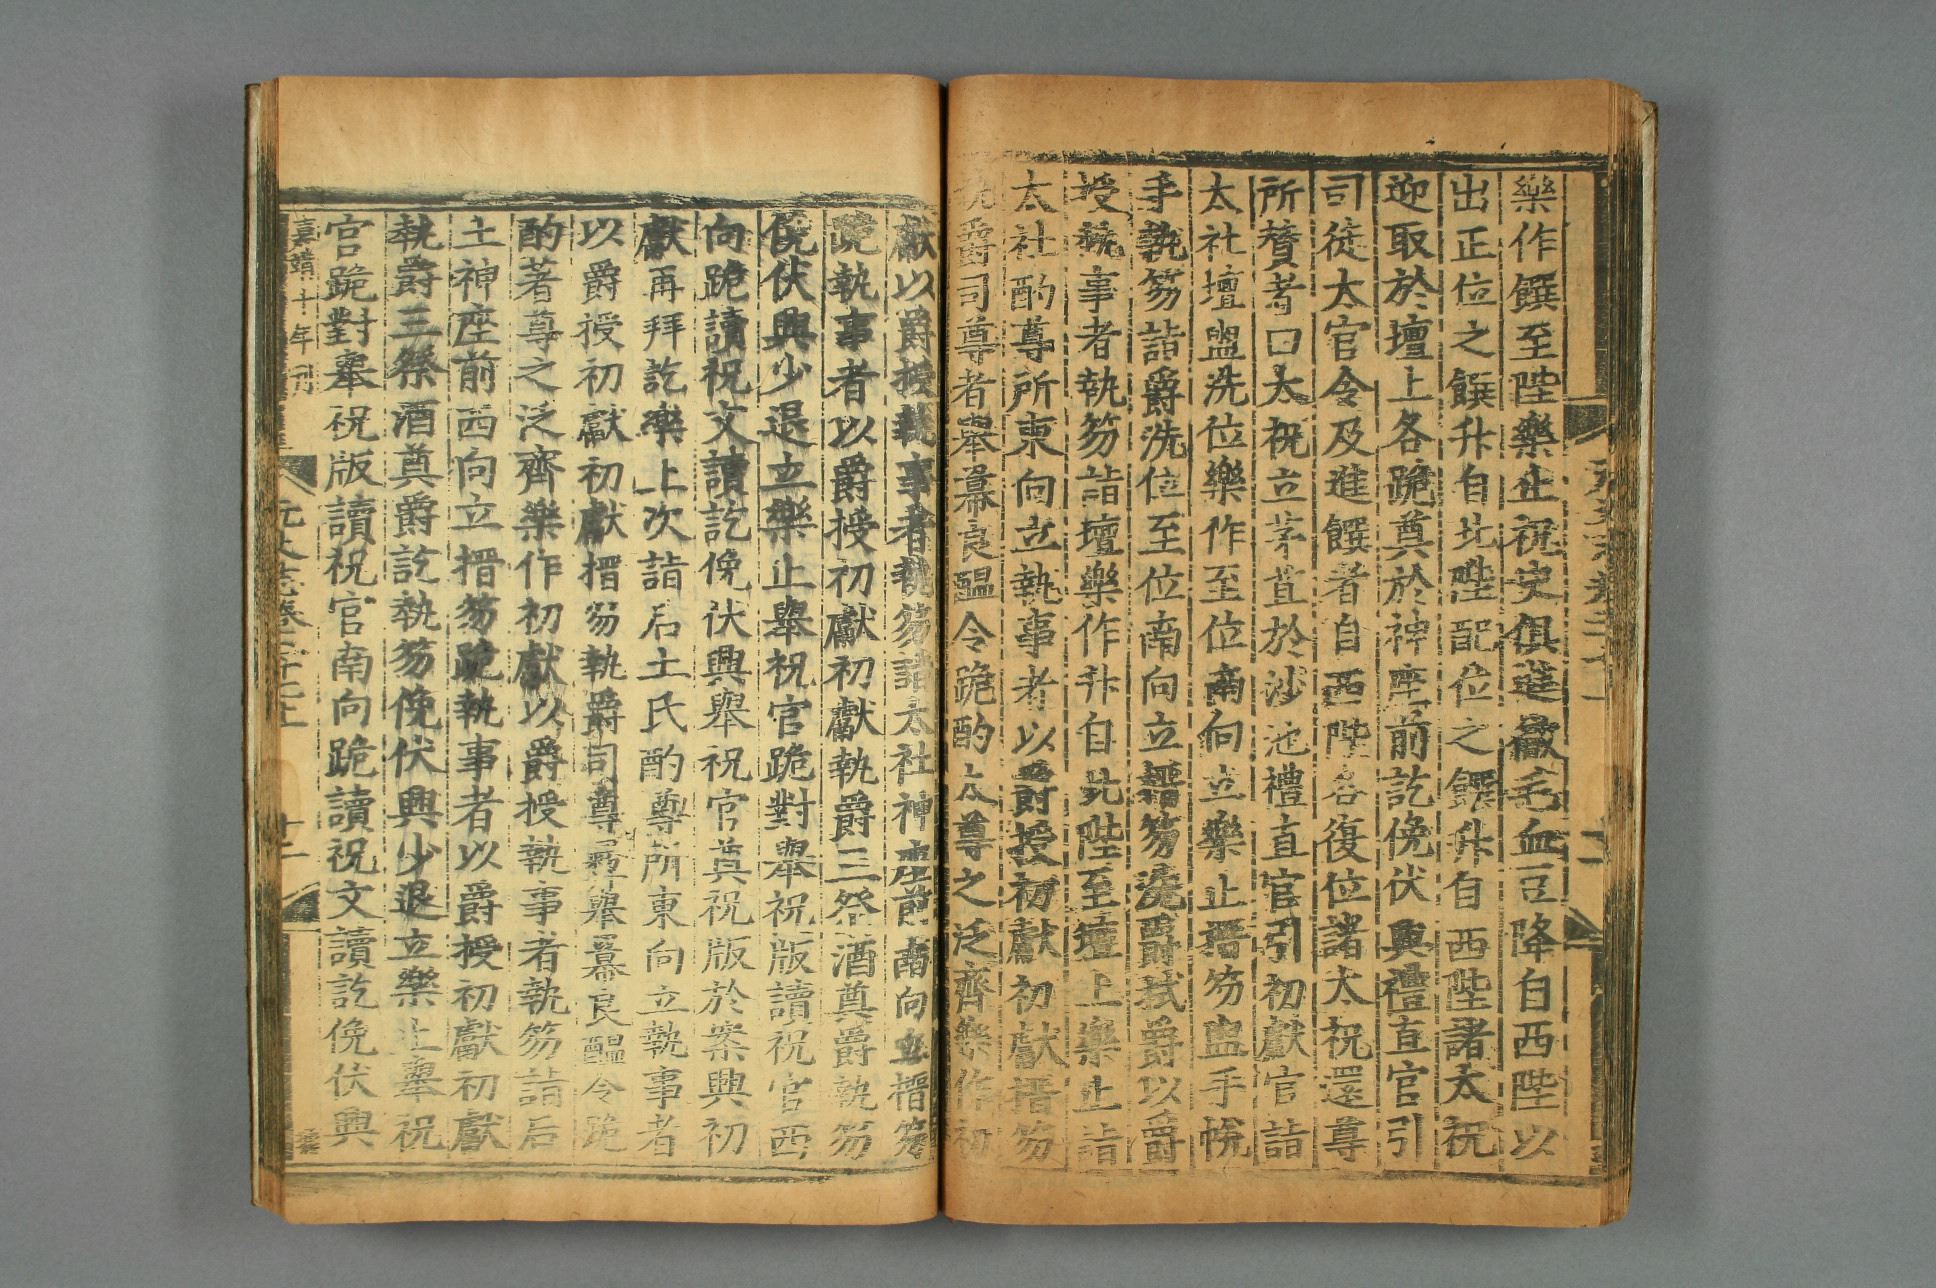 樂作饌至陛樂止祝史俱進徹毛血豆降自西陛以
出正位之饌升自北陛配位之饌升自西陛諸太祝
迎取於壇上各跪奠於神座前訖俛伏興禮直官引
司徒太官令及進饌者自西陛各復位諸太祝還尊
所贊者曰太祝立茅苴於沙池禮直官引初獻官詣
太社壇盥洗位樂作至位南向立樂止搢笏盥手帨
手執笏詣爵洗位至位南向立搢笏洗爵拭爵以爵
授執事者執笏詣壇樂作升自北陛至壇上樂止詣
太社酌尊所東向立執事者以爵授初獻初獻搢笏
執爵司尊者舉冪良醞令跪酌太尊之泛齊樂作初
獻以爵授執事者執笏詣太社神座前南向立搢笏
跪執事者以爵授初獻初獻執爵三祭酒奠爵執笏
俛伏興少退立樂止舉祝官跪對舉祝版讀祝官西
向跪讀祝文讀訖俛伏興舉祝官奠祝版於案興初
獻再拜訖樂止次詣后土氏酌尊所東向立執事者
以爵授初獻初獻搢笏執爵司尊者舉冪良醞令跪
酌著尊之泛齊樂作初獻以爵授執事者執笏詣后
土神座前西向立搢笏跪執事者以爵授初獻初獻
執爵三祭酒奠爵訖執笏俛伏興少退立樂止舉祝
官跪對舉祝版讀祝官南向跪讀祝文讀訖俛伏興
嘉靖十年刊
元史志卷二十七
十二